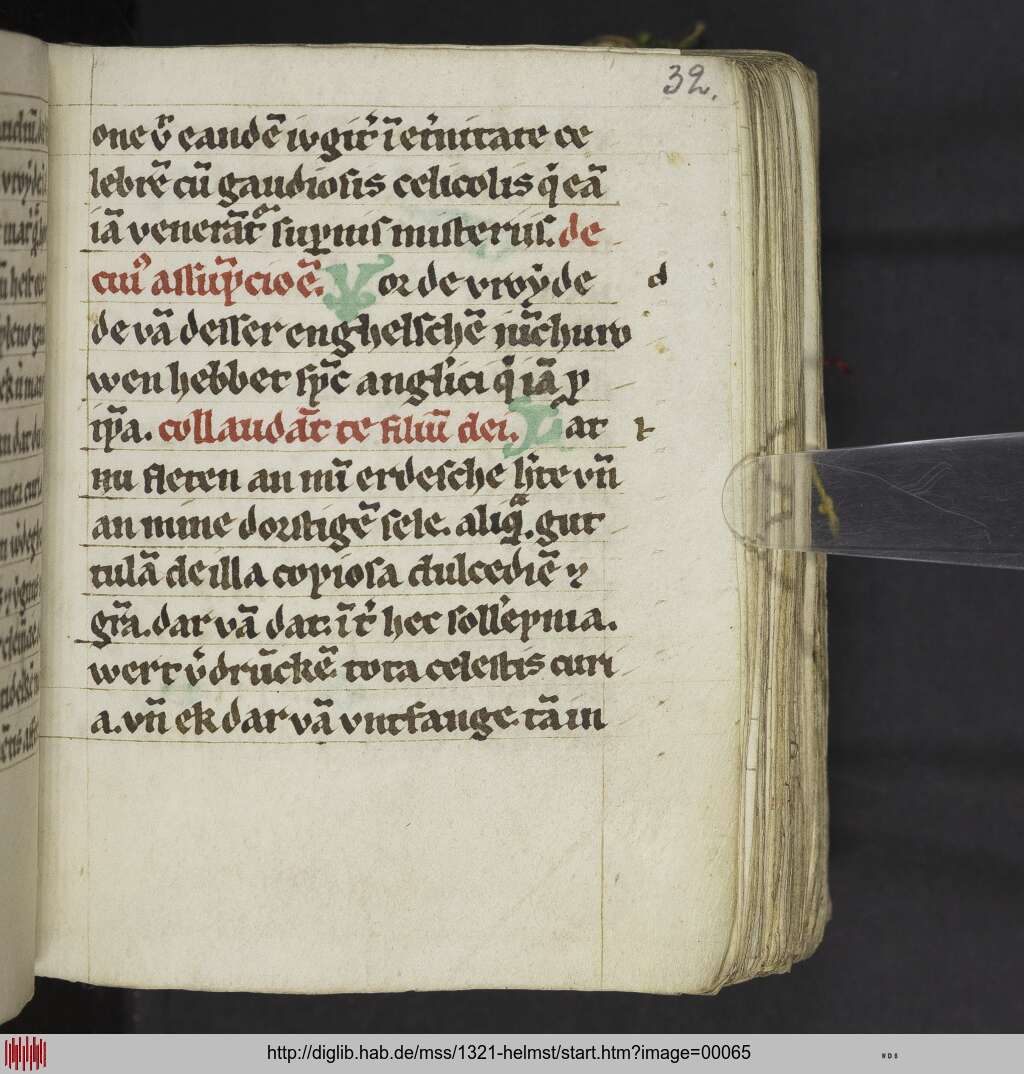 32.
one vͦ eandē iugit᷑ ī et᷑nitate ce
lebrē cū gaudiosis celicolis qͥ eā
iā venerāt᷑ supnis misteriis. de
cuiꝰ assūpcioē. Vor de vroẏde
de vā desser enghelschē iūchurv
wen hebbet spc̄ angl'ici qͥ iā ⁊
ip̄a. collaudāt te filiū dei. Lat
nu fleten an mī erdesche h'te vn̄
an mine dorstigē sele. aliqͣ. gut
tulā de illa copiosa dulcediē ⁊
gr̄a. dar vā dat. ī t᷑ hec soll'epnia.
wert v᷑drūckē tota celestis curi
a. vn̄ ek dar vā vntfange. tā in
http://diglib.hab.de/mss/1321-helmst/start.htm?image=00065